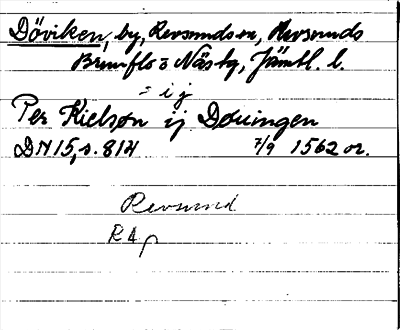 Döviken, by, Revsunds sn, Revsunds
Brunflo o Näsby, Jämtl. l.
= ij
Per Kielsøn ij Døuingen
DN 15, s. 814 7/9 1562 or.
Revsund
RA